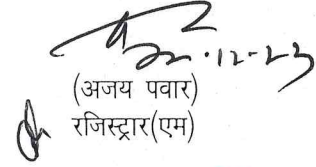 12-23
(अजय पवार)
रजिस्ट्रार(एम)